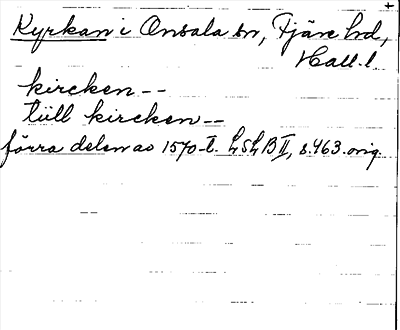 Kyrkan i Onsala sn, Fjäre hd,
Hall.l.
kircken --
tüll kircken --
förra delen av 1570-t. LSLB II, s. 463. orig.